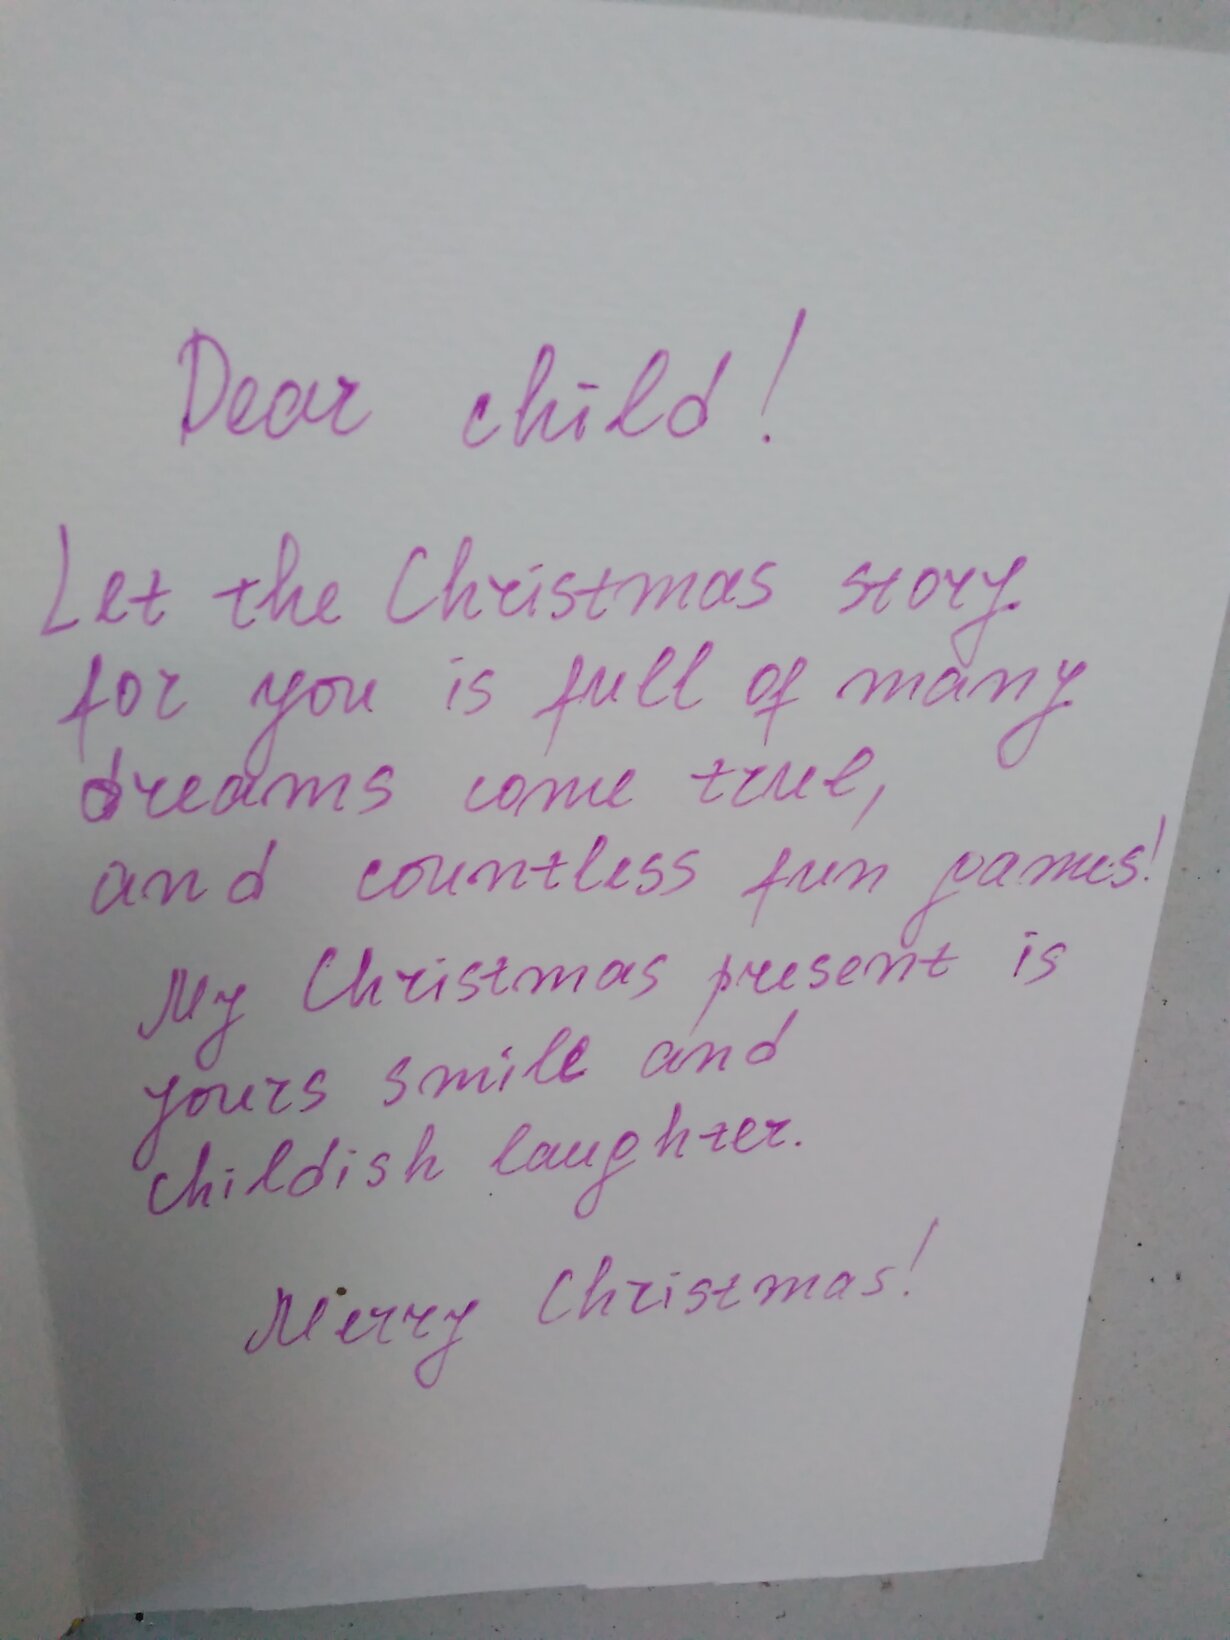 Dear child!
Let the Christmas story
for you is full of many
dreams come true,
and countless fun games!
My Christmas present is
yours smile and
childish laughter.
Merry Christmas!